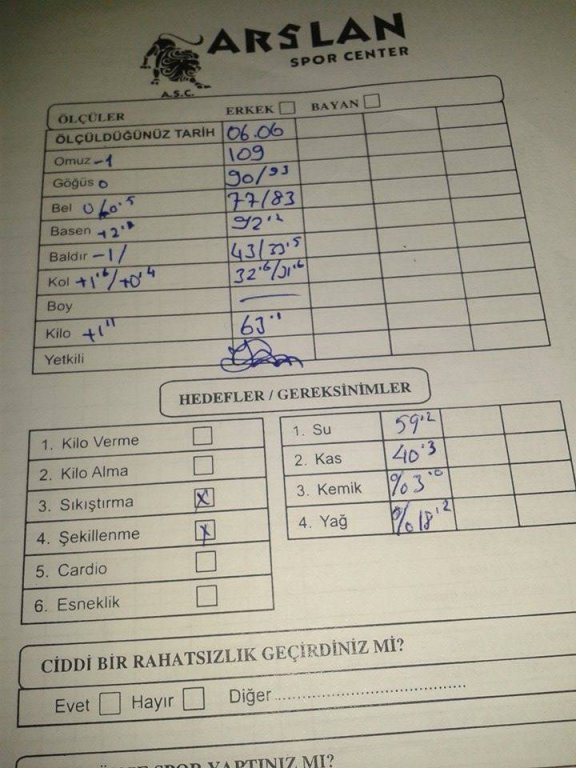 ARSLAN
SPOR CENTER
A.S.C.
ÖLÇÜLER ERKEK BAYAN
ÖLÇÜLDÜĞÜNÜZ TARİH 06.06
Omuz -1 109
Göğüs 0 90/93
Bel 77/83
Basen 92.2
Baldır -1/ 43/
Kol +1.6/+0.4 32.6/31.6
Boy —
Kilo +1.1 63.1
Yetkili
HEDEFLER / GEREKSİNİMLER
1. Kilo Verme
2. Kilo Alma
3. Sıkıştırma X
4. Şekillenme X
5. Cardio
6. Esneklik
1. Su 59.2
2. Kas 40.3
3. Kemik %3.0
4. Yağ %18.2
CİDDİ BİR RAHATSIZLIK GEÇİRDİNİZ Mİ?
Evet Hayır Diğer
SPOR YAPTINIZ MI?